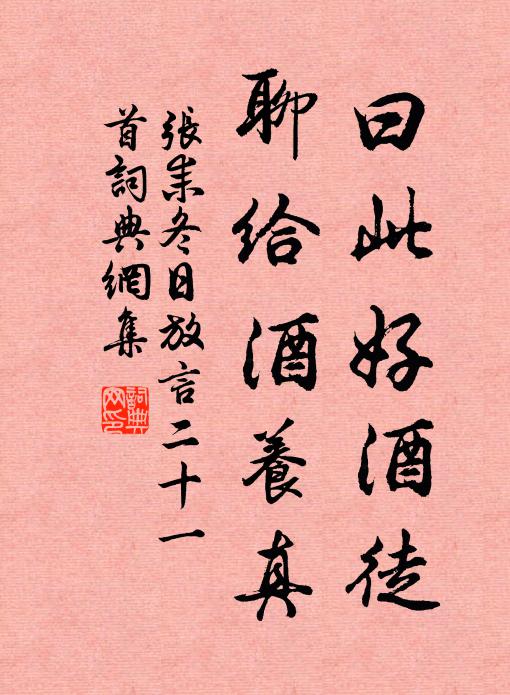 曰此好酒徒
聊給酒養真
張耒冬日放言二十一
首詞典網集
詞典
网印